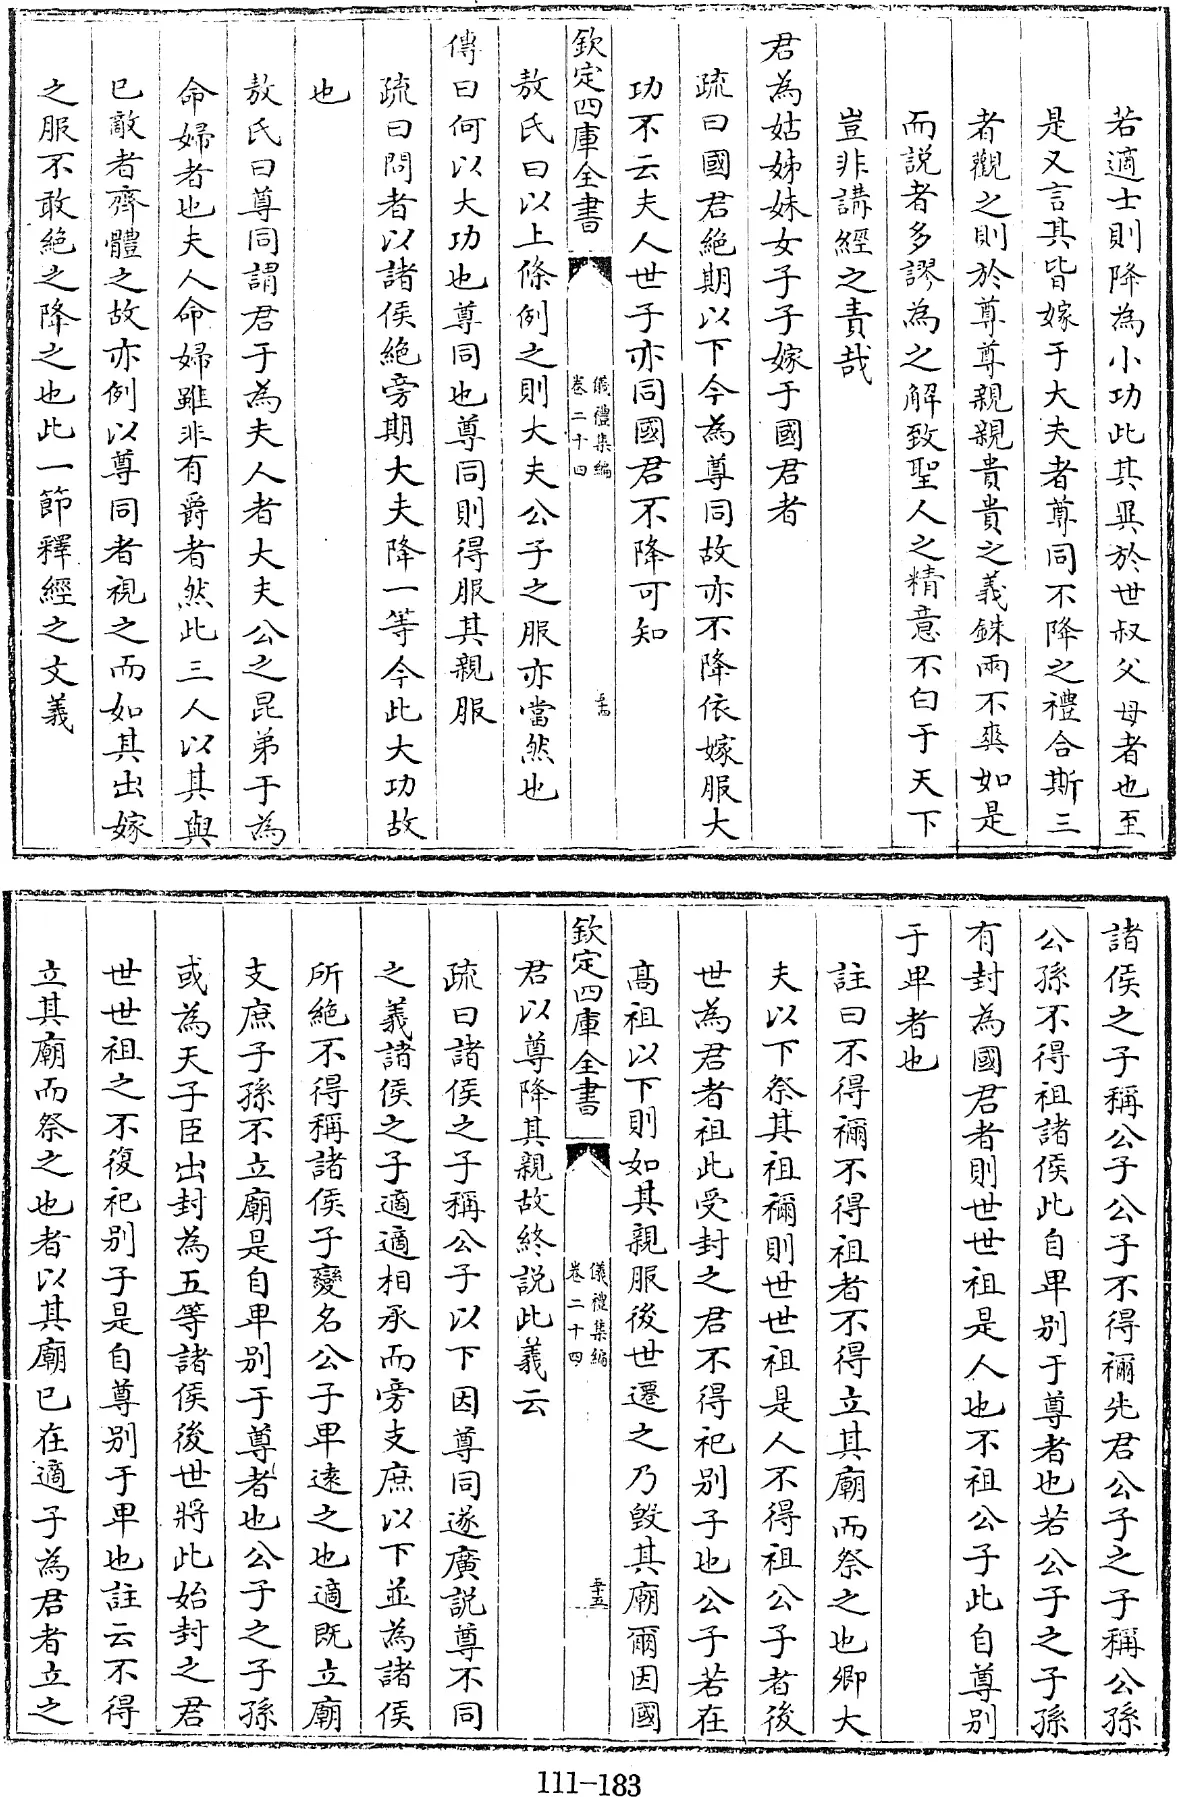 若適士則降為小功此其異於世叔父母者也至
是又言其皆嫁于大夫者尊同不降之禮合斯三
者觀之則於尊尊親親貴貴之義銖兩不爽如是
而説者多謬為之解致聖人之精意不白于天下
豈非講經之責哉
君為姑姊妹女子子嫁于國君者
疏曰國君絶期以下今為尊同故亦不降依嫁服大
功不云夫人世子亦同國君不降可知
欽定四庫全書
儀禮集編
卷二十四
五十四
敖氏曰以上條例之則大夫公子之服亦當然也
傳曰何以大功也尊同也尊同則得服其親服
疏曰問者以諸侯絶旁期大夫降一等今此大功故
也
敖氏曰尊同謂君于為夫人者大夫公之昆弟于為
命婦者也夫人命婦雖非有爵者然此三人以其與
已敵者齊體之故亦例以尊同者視之而如其出嫁
之服不敢絶之降之也此一節釋經之文義
諸侯之子稱公子公子不得禰先君公子之子稱公孫
公孫不得祖諸侯此自卑别于尊者也若公子之子孫
有封為國君者則世世祖是人也不祖公子此自尊别
于卑者也
註曰不得禰不得祖者不得立其廟而祭之也卿大
夫以下祭其祖禰則世世祖是人不得祖公子者後
世為君者祖此受封之君不得祀别子也公子若在
高祖以下則如其親服後世遷之乃毁其廟爾因國
欽定四庫全書
儀禮集編
卷二十四
五十五
君以尊降其親故終説此義云
疏曰諸侯之子稱公子以下因尊同遂廣説尊不同
之義諸侯之子適適相承而旁支庶以下並為諸侯
所絶不得稱諸侯子變名公子卑遠之也適既立廟
支庶子孫不立廟是自卑别于尊者也公子之子孫
或為天子臣出封為五等諸侯後世將此始封之君
世世祖之不復祀别子是自尊别于卑也註云不得
立其廟而祭之也者以其廟已在適子為君者立之
111-183